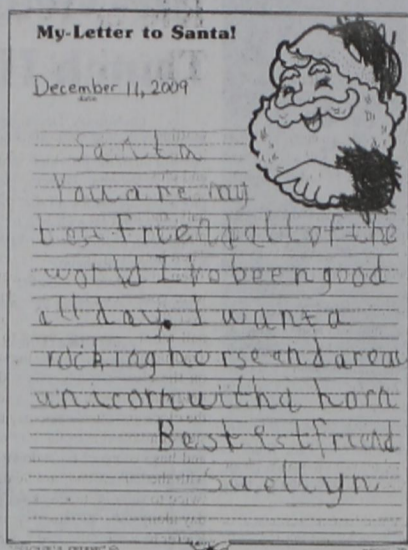 My Letter to Santa!
December 11, 2009
date
Santa
You are my
friend all of the
world I ve been good
all day. I want a
rocking horse and a
unicorn with a horn
Best est friend
Suellyn